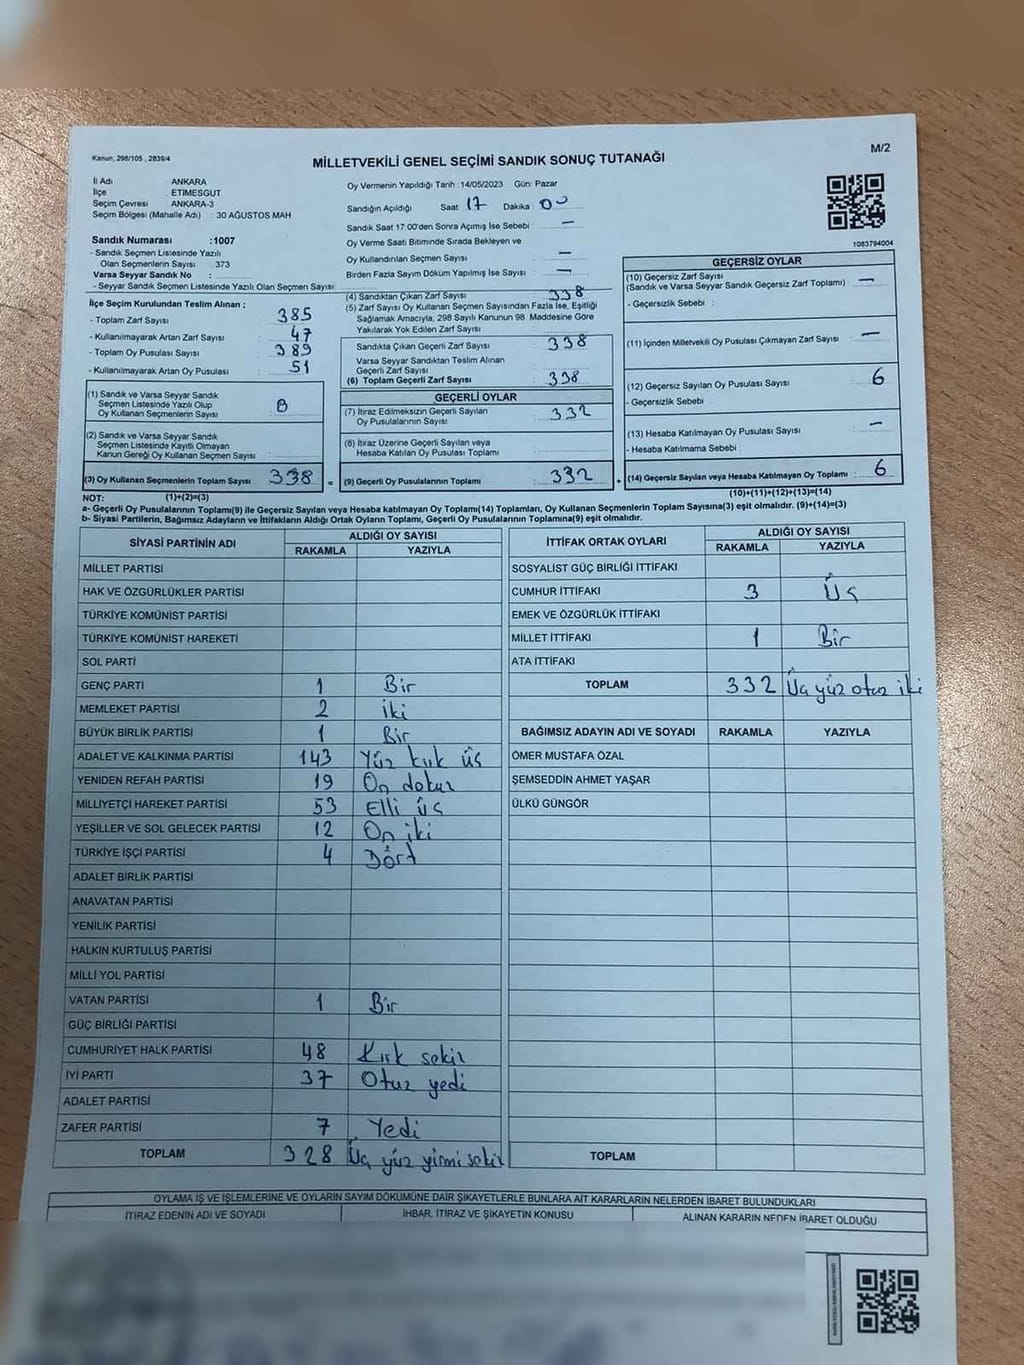 Kanun, 298/105 , 2839/4
M/2
MİLLETVEKİLİ GENEL SEÇİMİ SANDIK SONUÇ TUTANAĞI
İl Adı ANKARA
İlçe ETİMESGUT
Seçim Çevresi ANKARA-3
Seçim Bölgesi (Mahalle Adı) : 30 AĞUSTOS MAH
Sandık Numarası :1007
- Sandık Seçmen Listesinde Yazılı
Olan Seçmenlerin Sayısı : 373
Varsa Seyyar Sandık No :
- Seyyar Sandık Seçmen Listesinde Yazılı Olan Seçmen Sayısı:
Oy Vermenin Yapıldığı Tarih :14/05/2023 Gün: Pazar
Sandığın Açıldığı Saat : 17 Dakika : 00
Sandık Saat 17:00'den Sonra Açımış İse Sebebi : —
Oy Verme Saati Bitiminde Sırada Bekleyen ve
Oy Kullandırılan Seçmen Sayısı : —
Birden Fazla Sayım Döküm Yapılmış İse Sayısı : —
1083794004
İlçe Seçim Kurulundan Teslim Alınan ;
- Toplam Zarf Sayısı : 385
- Kullanılmayarak Artan Zarf Sayısı : 47
- Toplam Oy Pusulası Sayısı : 389
- Kullanılmayarak Artan Oy Pusulası : 51
(1) Sandık ve Varsa Seyyar Sandık
Seçmen Listesinde Yazılı Olup
Oy Kullanan Seçmenlerin Sayısı :
(2) Sandık ve Varsa Seyyar Sandık
Seçmen Listesinde Kayıtlı Olmayan
Kanun Gereği Oy Kullanan Seçmen Sayısı :
(3) Oy Kullanan Seçmenlerin Toplam Sayısı 338 =
(4) Sandıktan Çıkan Zarf Sayısı : 338
(5) Zarf Sayısı Oy Kullanan Seçmen Sayısından Fazla İse, Eşitliği
Sağlamak Amacıyla, 298 Sayılı Kanunun 98. Maddesine Göre
Yakılarak Yok Edilen Zarf Sayısı :
Sandıkta Çıkan Geçerli Zarf Sayısı : 338
Varsa Seyyar Sandıktan Teslim Alınan
Geçerli Zarf Sayısı :
(6) Toplam Geçerli Zarf Sayısı : 338
GEÇERLİ OYLAR
(7) İtiraz Edilmeksizin Geçerli Sayılan
Oy Pusulalarının Sayısı : 332
(8) İtiraz Üzerine Geçerli Sayılan veya
Hesaba Katılan Oy Pusulası Toplamı :
(9) Geçerli Oy Pusulalarının Toplamı : 332 +
GEÇERSİZ OYLAR
(10) Geçersiz Zarf Sayısı
(Sandık ve Varsa Seyyar Sandık Geçersiz Zarf Toplamı) : —
- Geçersizlik Sebebi :
(11) İçinden Milletvekili Oy Pusulası Çıkmayan Zarf Sayısı : —
(12) Geçersiz Sayılan Oy Pusulası Sayısı : 6
- Geçersizlik Sebebi
(13) Hesaba Katılmayan Oy Pusulası Sayısı : —
- Hesaba Katılmama Sebebi :
(14) Geçersiz Sayılan veya Hesaba Katılmayan Oy Toplamı : 6
NOT: (1)+(2)=(3) (10)+(11)+(12)+(13)=(14)
a- Geçerli Oy Pusulalarının Toplamı(9) ile Geçersiz Sayılan veya Hesaba katılmayan Oy Toplamı(14) Toplamları, Oy Kullanan Seçmenlerin Toplam Sayısına(3) eşit olmalıdır. (9)+(14)=(3)
b- Siyasi Partilerin, Bağımsız Adayların ve İttifakların Aldığı Ortak Oyların Toplamı, Geçerli Oy Pusulalarının Toplamına(9) eşit olmalıdır.
SİYASİ PARTİNİN ADI ALDIĞI OY SAYISI
RAKAMLA YAZIYLA
MİLLET PARTİSİ
HAK VE ÖZGÜRLÜKLER PARTİSİ
TÜRKİYE KOMÜNİST PARTİSİ
TÜRKİYE KOMÜNİST HAREKETİ
SOL PARTİ
GENÇ PARTİ 1 Bir
MEMLEKET PARTİSİ 2 iki
BÜYÜK BİRLİK PARTİSİ 1 Bir
ADALET VE KALKINMA PARTİSİ 143 Yüz kırk üç
YENİDEN REFAH PARTİSİ 19 On dokuz
MİLLİYETÇİ HAREKET PARTİSİ 53 Elli üç
YEŞİLLER VE SOL GELECEK PARTİSİ 12 On iki
TÜRKİYE İŞÇİ PARTİSİ 4 Dört
ADALET BİRLİK PARTİSİ
ANAVATAN PARTİSİ
YENİLİK PARTİSİ
HALKIN KURTULUŞ PARTİSİ
MİLLİ YOL PARTİSİ
VATAN PARTİSİ 1 Bir
GÜÇ BİRLİĞİ PARTİSİ
CUMHURİYET HALK PARTİSİ 48 Kırk sekiz
İYİ PARTİ 37 Otuz yedi
ADALET PARTİSİ
ZAFER PARTİSİ 7 Yedi
TOPLAM 328 Üç yüz yirmi sekiz
İTTİFAK ORTAK OYLARI ALDIĞI OY SAYISI
RAKAMLA YAZIYLA
SOSYALİST GÜÇ BİRLİĞİ İTTİFAKI
CUMHUR İTTİFAKI 3 Üç
EMEK VE ÖZGÜRLÜK İTTİFAKI
MİLLET İTTİFAKI 1 Bir
ATA İTTİFAKI
TOPLAM 332 Üç yüz otuz iki
BAĞIMSIZ ADAYIN ADI VE SOYADI RAKAMLA YAZIYLA
ÖMER MUSTAFA ÖZAL
ŞEMSEDDİN AHMET YAŞAR
ÜLKÜ GÜNGÖR
TOPLAM
OYLAMA İŞ VE İŞLEMLERİNE VE OYLARIN SAYIM DÖKÜMÜNE DAİR ŞİKAYETLERLE BUNLARA AİT KARARLARIN NELERDEN İBARET BULUNDUKLARI
İTİRAZ EDENİN ADI VE SOYADI İHBAR, İTİRAZ VE ŞİKAYETİN KONUSU ALINAN KARARIN NEDEN İBARET OLDUĞU